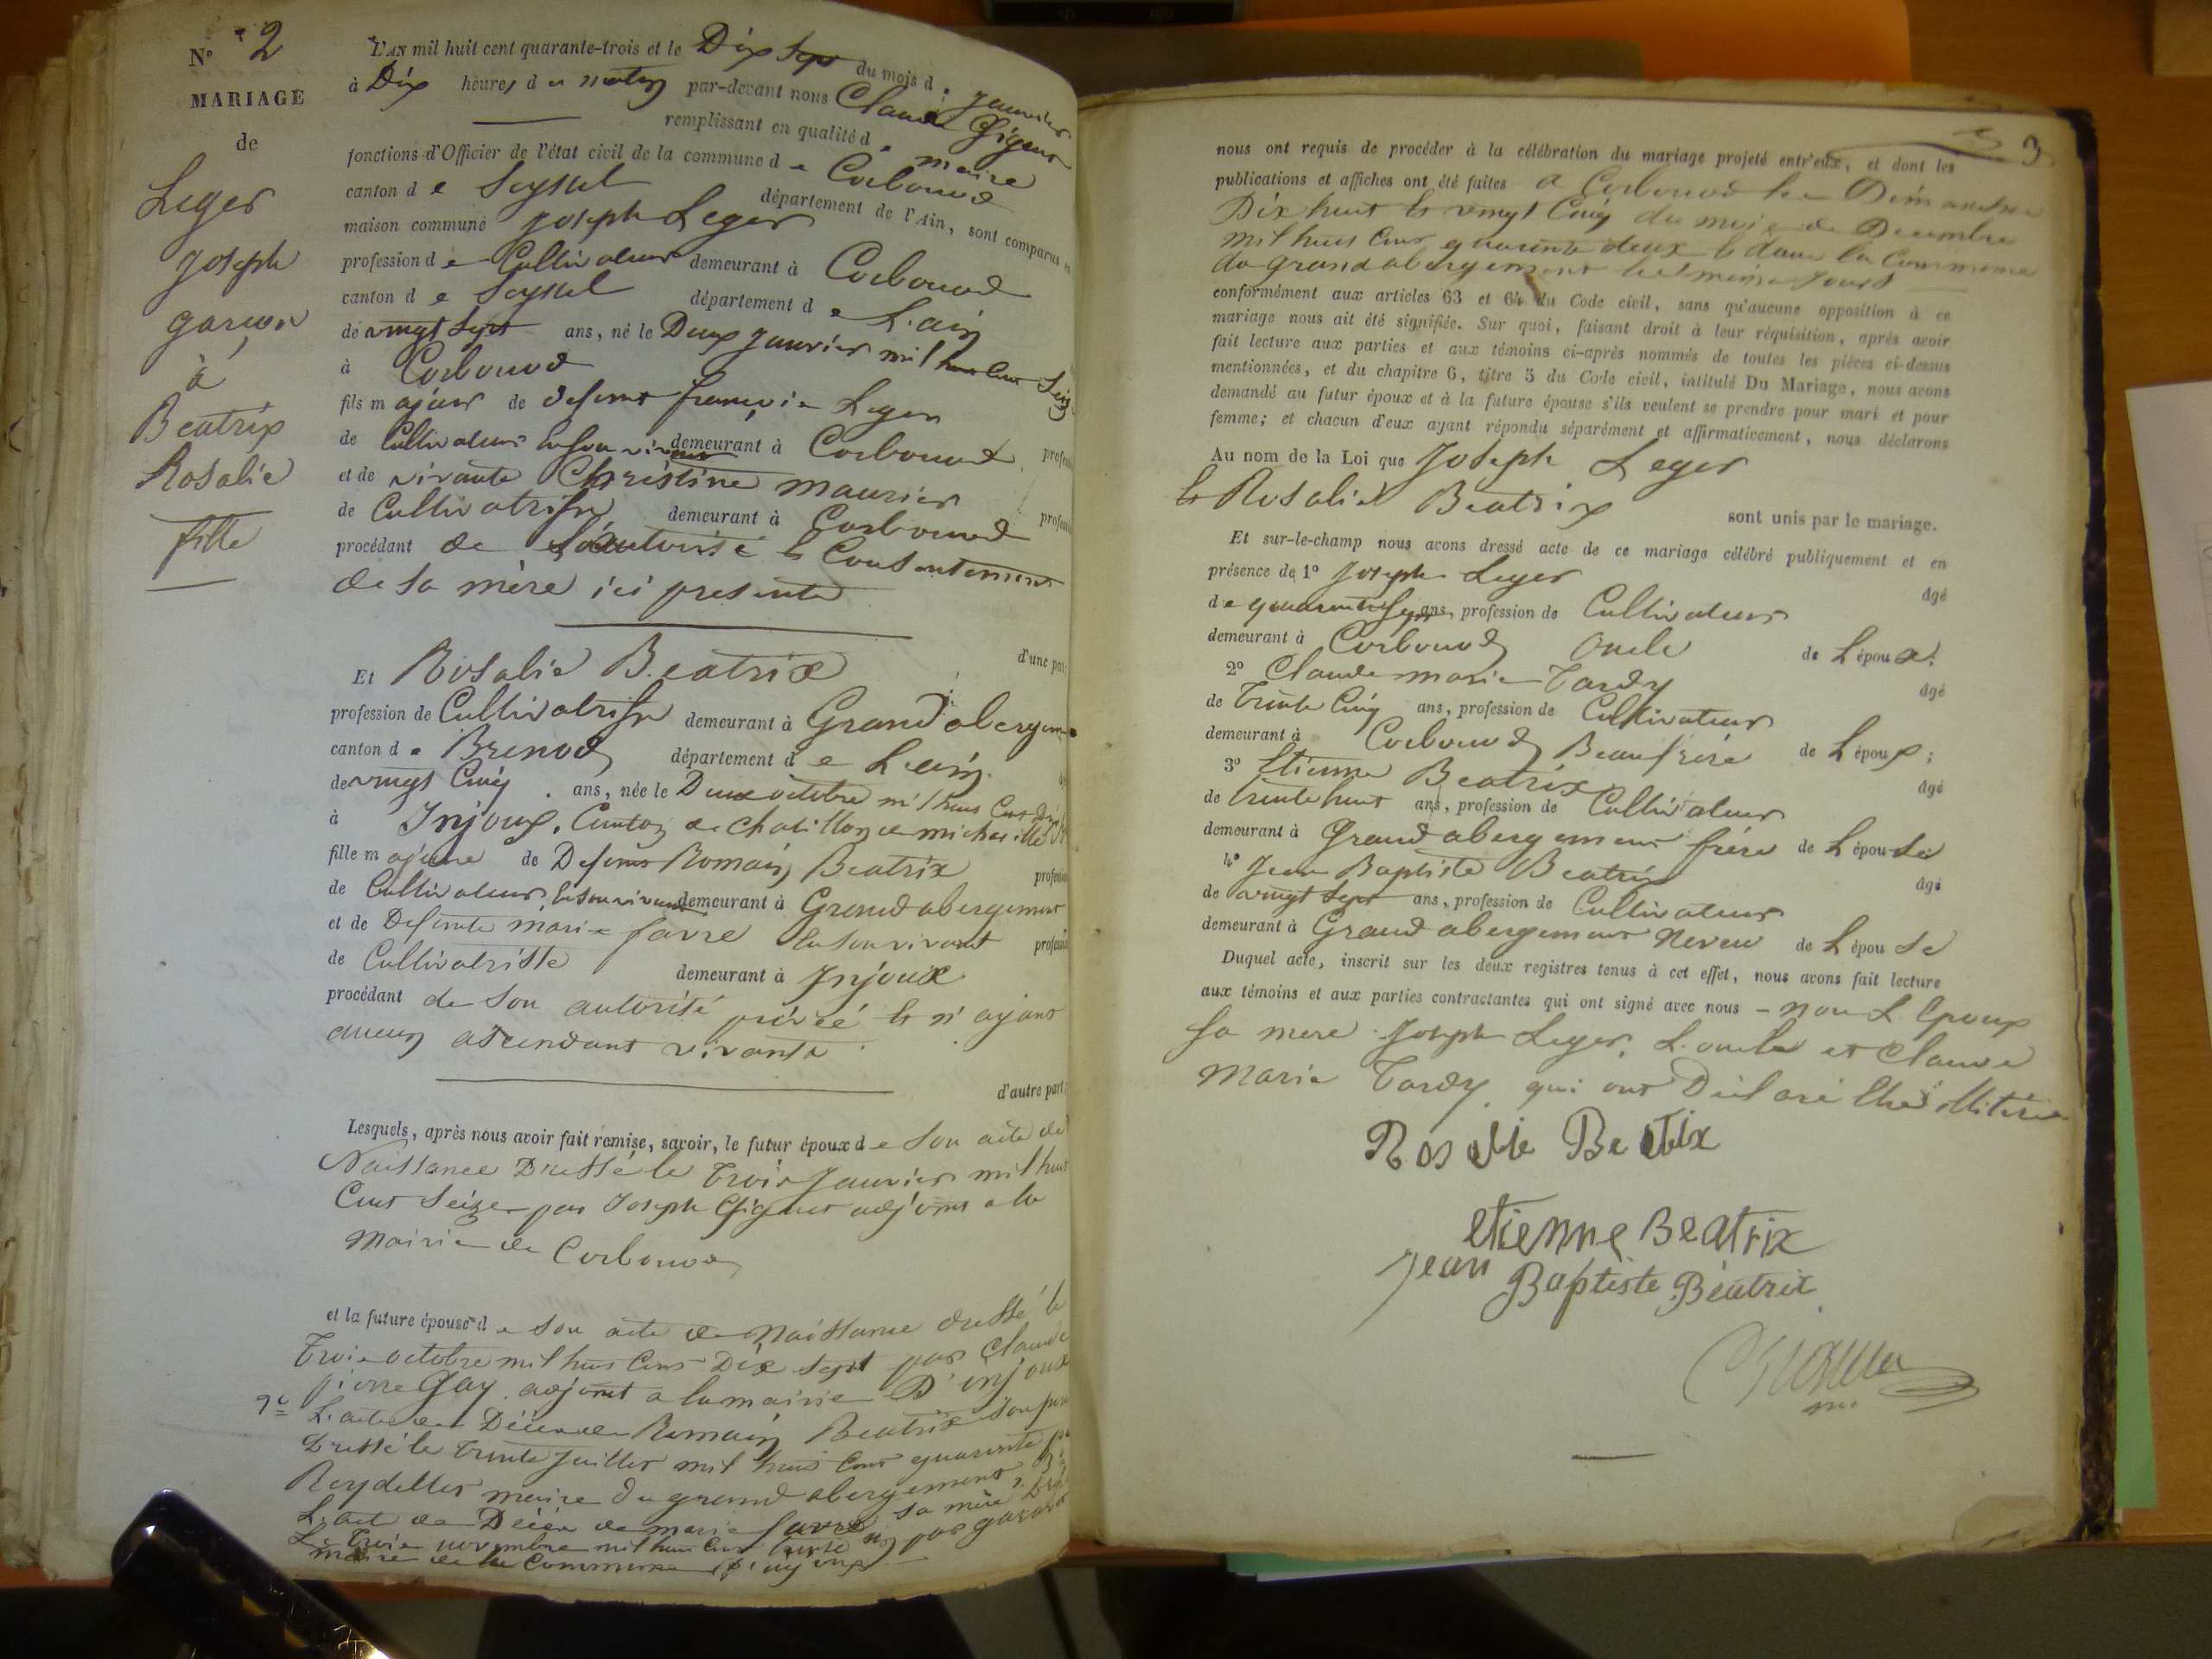 N° 2
MARIAGE
de
Leger
Joseph
garcon
à
Beatrix
Rosalie
fille
L'AN mil huit cent quarante-trois et le Dix sept du mois de janvier
à Dix heures du matin par-devant nous Claude
remplissant en qualité de maire
fonctions d'Officier de l'état civil de la commune de Corbonod
canton de Seyssel département de l'Ain, sont comparus en
maison commune Joseph Leger
profession de Cultivateur demeurant à Corbonod
canton de Seyssel département de L'ain
de vingt sept ans, né le Deux janvier mil huit cent Seize
à Corbonod
fils majeur de defunt françois Leger
de Cultivateur en son vivant demeurant à Corbonod
et de vivante Christine maurier
de Cultivatrisse demeurant à Corbonod
procédant de et Consentement
de sa mère ici presente
d'une part;
Et Rosalie Beatrix
profession de Cultivatrisse demeurant à Grand abergement
canton de Brenod département de L'ain
de vingt Cinq ans, née le Deux octobre mil huit Cent Dix sept
à Injoux, Canton de Chatillon de michaille
fille majeure de Defunt Romain Beatrix profession
de Cultivateur en son vivant demeurant à Grand abergement
et de Defunte marie favre en son vivant profession
de Cultivatrisse demeurant à Injoux
procédant de son autorité privée et n'ayant
aucun ascendant vivants
d'autre part;
Lesquels, après nous avoir fait remise, savoir, le futur époux de son acte de
Naissance Dressé le trois Janvier mil huit
Cent Seize par Joseph adjoint a la
Mairie de Corbonod
et la future épouse de son acte de Naissance dressé le
trois octobre mil huit Cent Dix sept par Claude
pierre Gay adjoint a la mairie D'injoux
2° L'acte de Décès de Romain Beatrix son père
Dressé le trente juillet mil huit Cent quarante par
Reydellet maire du grand abergement 3°
L'acte de Décès de marie favre sa mère
Le trois novembre mil huit Cent trente par
maire de la Commune d'injoux
3
nous ont requis de procéder à la célébration du mariage projeté entr'eux, et dont les
publications et affiches ont été faites a Corbonod les Dimanches
Dix huit et vingt Cinq du mois de Decembre
mil huit Cent quarante deux et dans la Commune
du grand abergement les mêmes jours
conformément aux articles 63 et 64 du Code civil, sans qu'aucune opposition à ce
mariage nous ait été signifiée. Sur quoi, faisant droit à leur réquisition, après avoir
fait lecture aux parties et aux témoins ci-après nommés de toutes les pièces ci-dessus
mentionnées, et du chapitre 6, titre 5 du Code civil, intitulé Du Mariage, nous avons
demandé au futur époux et à la future épouse s'ils veulent se prendre pour mari et pour
femme; et chacun d'eux ayant répondu séparément et affirmativement, nous déclarons
Au nom de la Loi que Joseph Leger
et Rosalie Beatrix sont unis par le mariage.
Et sur-le-champ nous avons dressé acte de ce mariage célébré publiquement et en
présence de 1° Joseph Leger âgé
de quarante sept ans, profession de Cultivateur
demeurant à Corbonod oncle de L'époux;
2° Claude marie Tardy âgé
de trente Cinq ans, profession de Cultivateur
demeurant à Corbonod Beaufrère de L'époux;
3° Etienne Beatrix âgé
de trente huit ans, profession de Cultivateur
demeurant à Grand abergement frère de L'épouse
4° Jean Baptiste Beatrix âgé
de vingt sept ans, profession de Cultivateur
demeurant à Grand abergement neveu de L'épouse
Duquel acte, inscrit sur les deux registres tenus à cet effet, nous avons fait lecture
aux témoins et aux parties contractantes qui ont signé avec nous - non L'époux
sa mere Joseph Leger, L'oncle et Claude
Marie Tardy qui ont Déclaré
Rosalie Beatix
etienne Beatrix
jean Baptiste Béatrix